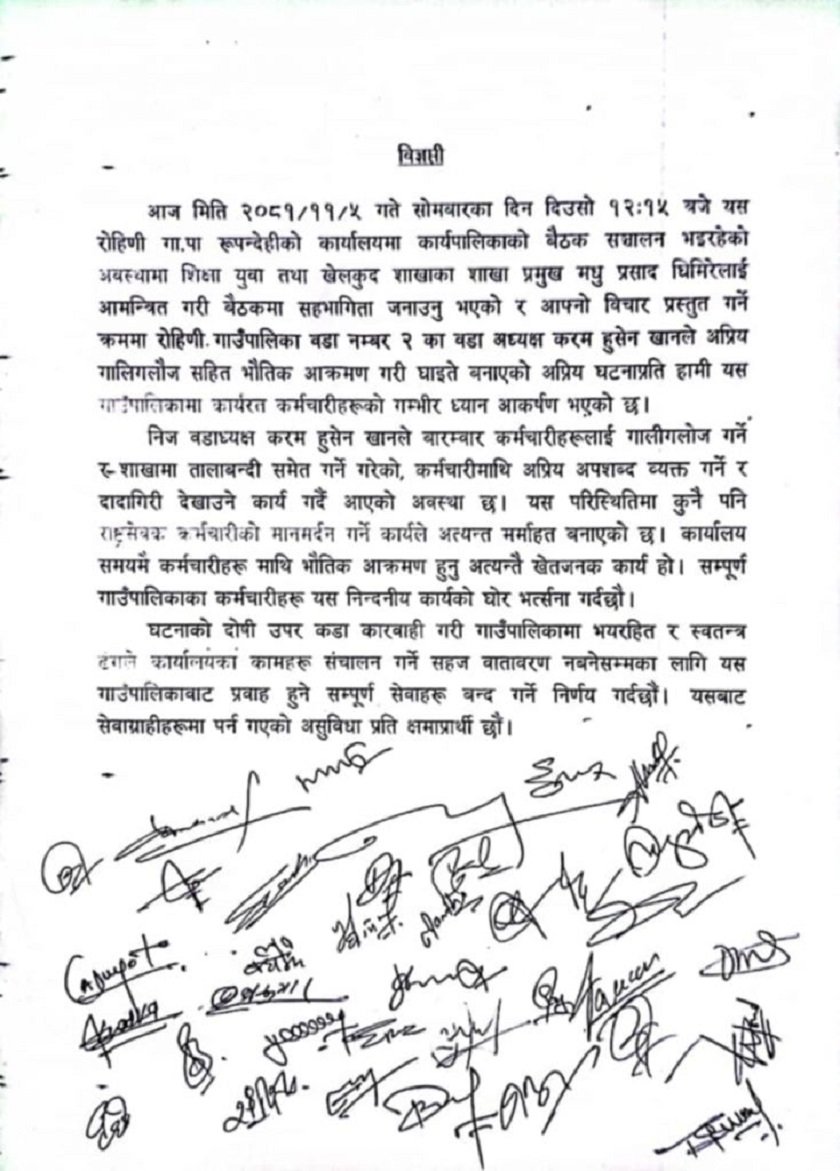 विज्ञप्ती
आज मिति २०८१/११/५ गते सोमबारका दिन दिउसो १२:१५ बजे यस
रोहिणी गा.पा रूपन्देहीको कार्यालयमा कार्यपालिकाको बैठक सञ्चालन भइरहेको
अवस्थामा शिक्षा युबा तथा खेलकुद शाखाका शाखा प्रमुख मधु प्रसाद घिमिरेलाई
आमन्त्रित गरी बैठकमा सहभागिता जनाउनु भएको र आफ्नो विचार प्रस्तुत गर्ने
क्रममा रोहिणी गाउँपालिका वडा नम्बर २ का वडा अध्यक्ष करम हुसेन खानले अप्रिय
गालिगलौज सहित भौतिक आक्रमण गरी घाइते बनाएको अप्रिय घटनाप्रति हामी यस
गाउँपालिकामा कार्यरत कर्मचारीहरूको गम्भीर ध्यान आकर्षण भएको छ।
निज वडाध्यक्ष करम हुसेन खानले बारम्बार कर्मचारीहरूलाई गालीगलोज गर्ने
र शाखामा तालाबन्दी समेत गर्ने गरेको, कर्मचारीमाथि अप्रिय अपशब्द व्यक्त गर्ने र
दादागिरी देखाउने कार्य गर्दै आएको अवस्था छ। यस परिस्थितिमा कुनै पनि
राष्ट्रसेवक कर्मचारीको मानमर्दन गर्ने कार्यले अत्यन्त मर्माहत बनाएको छ। कार्यालय
समयमै कर्मचारीहरू माथि भौतिक आक्रमण हुनु अत्यन्तै खेतजनक कार्य हो। सम्पूर्ण
गाउँपालिकाका कर्मचारीहरू यस निन्दनीय कार्यको घोर भर्त्सना गर्दछौ।
घटनाको दोषी उपर कडा कारबाही गरी गाउँपालिकामा भयरहित र स्वतन्त्र
ढंगले कार्यालयका कामहरू संचालन गर्ने सहज वातावरण नबनेसम्मका लागि यस
गाउँपालिकाबाट प्रवाह हुने सम्पूर्ण सेवाहरू बन्द गर्ने निर्णय गर्दछौं। यसबाट
सेवाग्राहीहरूमा पर्न गएको असुविधा प्रति क्षमाप्रार्थी छौं।